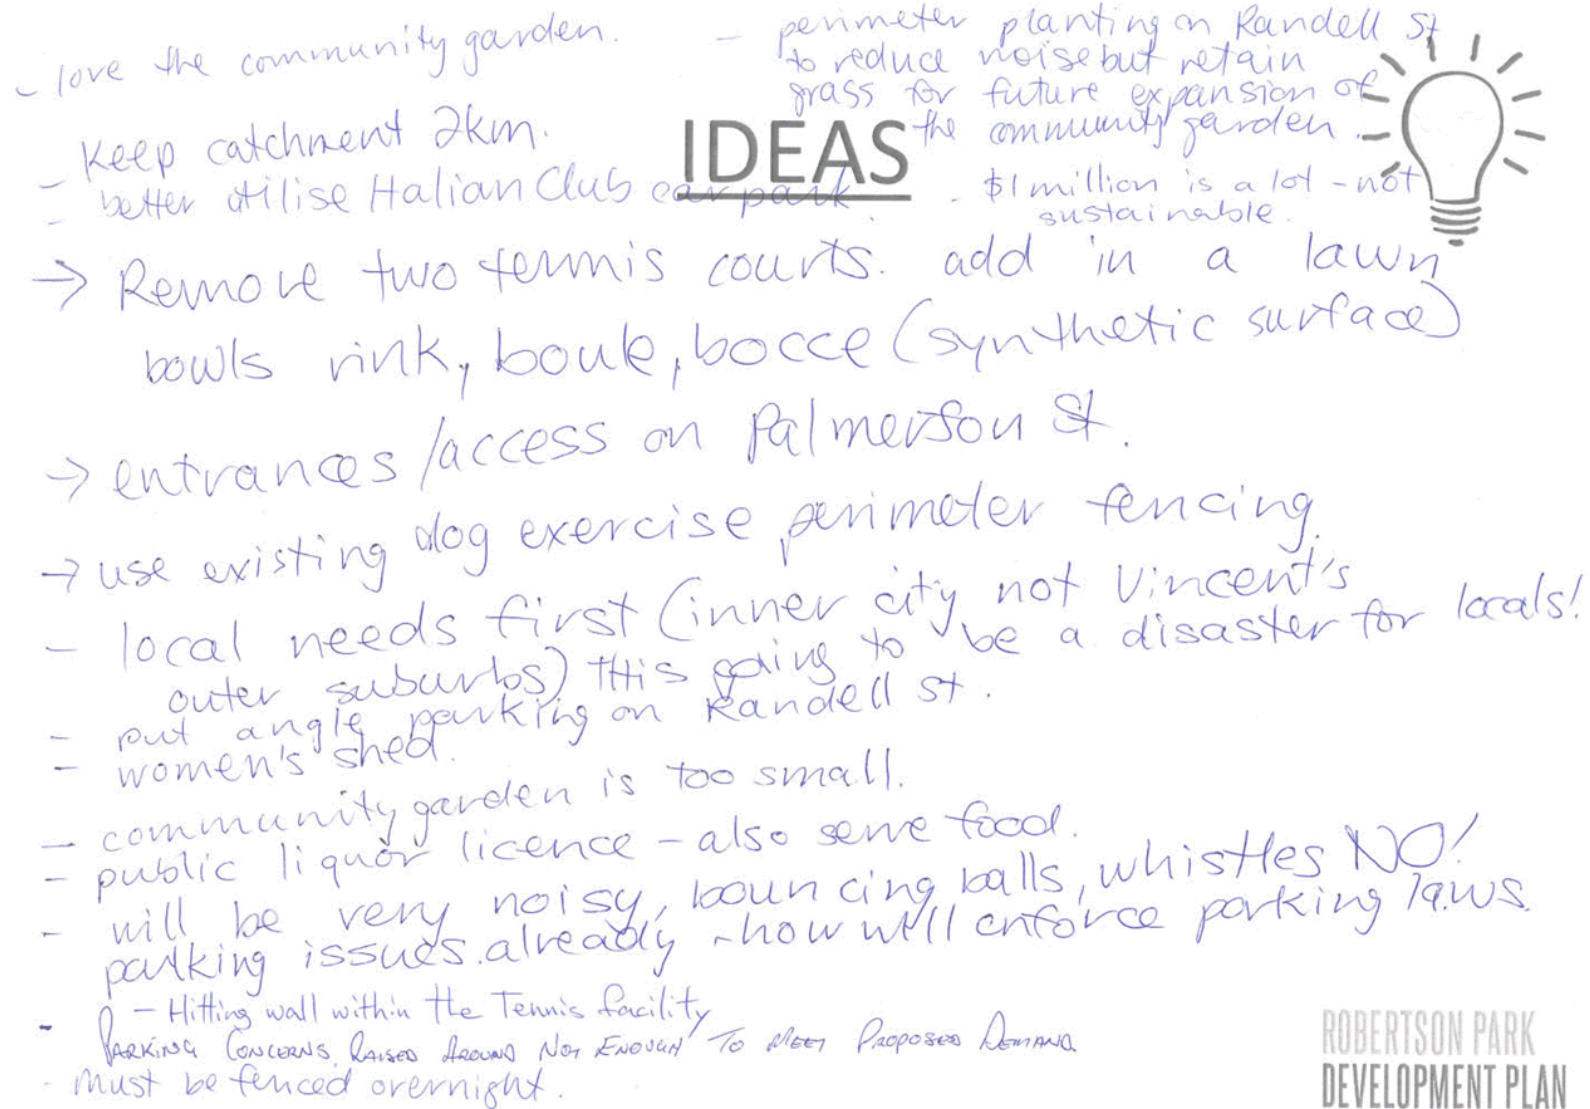 - love the community garden.
- perimeter planting on Randell St
to reduce noise but retain
grass for future expansion of
the community garden.
IDEAS
- Keep catchment 2km.
- better utilise Italian Club car park.
- $1 million is a lot - not
sustainable.
→ Remove two tennis courts. add in a lawn
bowls rink, boule, bocce (synthetic surface)
→ entrances/access on Palmerson St.
→ use existing dog exercise perimeter fencing.
- local needs first (inner city not Vincent's
outer suburbs) THis going to be a disaster for locals!
- put angle parking on Randell St.
- women's shed.
- community garden is too small.
- public liquor licence - also serve food.
- will be very noisy, bouncing balls, whistles NO!
- parking issues already - how will enforce parking laws.
- Hitting wall within the Tennis facility
- PARKING CONCERNS RAISED AROUND NOT ENOUGH TO MEET PROPOSED DEMAND.
- must be fenced overnight.
ROBERTSON PARK
DEVELOPMENT PLAN